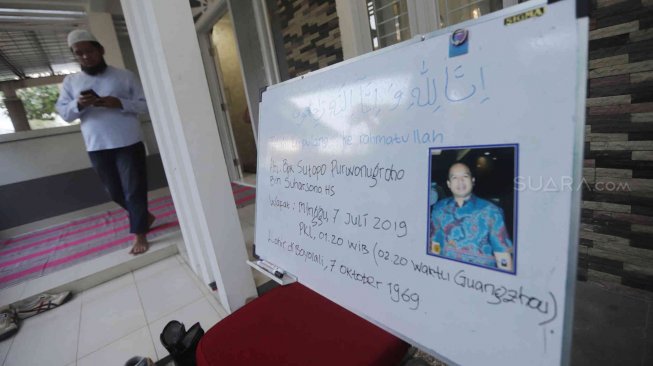 SIGMA
إنا لله وإنا إليه راجعون
ke rahmatullah
Bpk Sutopo Purwonugroho
Bin Suharsono HS
Wafat : Minggu, 7 Juli 2019
PKL. 01.20 WIB (02.20 Waktu Guangzhou)
Lahir di Boyolali, 7 Oktober 1969
SUARA.com